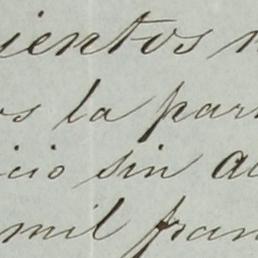 ientos n
os la par
icio sin a
mil fran